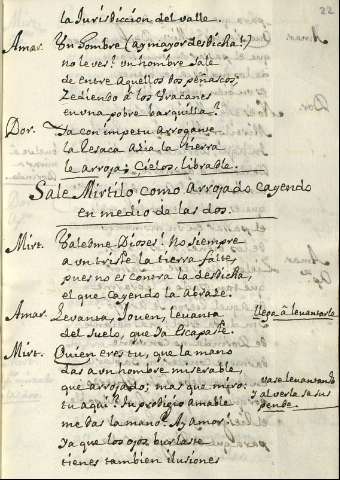 22
la Jurisdiccion del valle.
Amar. Un hombre (ay mayor desdicha!)
no le ves? un hombre sale
de entre aquellos dos peñascos,
Zediendo â los Uracanes
en una pobre barquilla?
Dor. Ya con impetu arrogante
la resaca azia la tierra
le arroja; Cielos, librable.
Sale Mirtilo como arrojado cayendo
en medio de las dos.
Mirt. Valedme Dioses! No siempre
a un triste la tierra falte,
pues no es contra la desdicha,
el que cayendo la abraze.
Amar. Levanta, Joven, levanta llega â levantarle
del suelo, que ya escapaste.
Mirt. Quien eres tu, que la mano
das a un hombre miserable,
que arrojado; mas que miro: vase levantando
tu aqui? Su prodigio amable y al verla se sus
me das la mano? Ay amor! pende.
Ya que los ojos burlaste
tienes tambien ilusiones